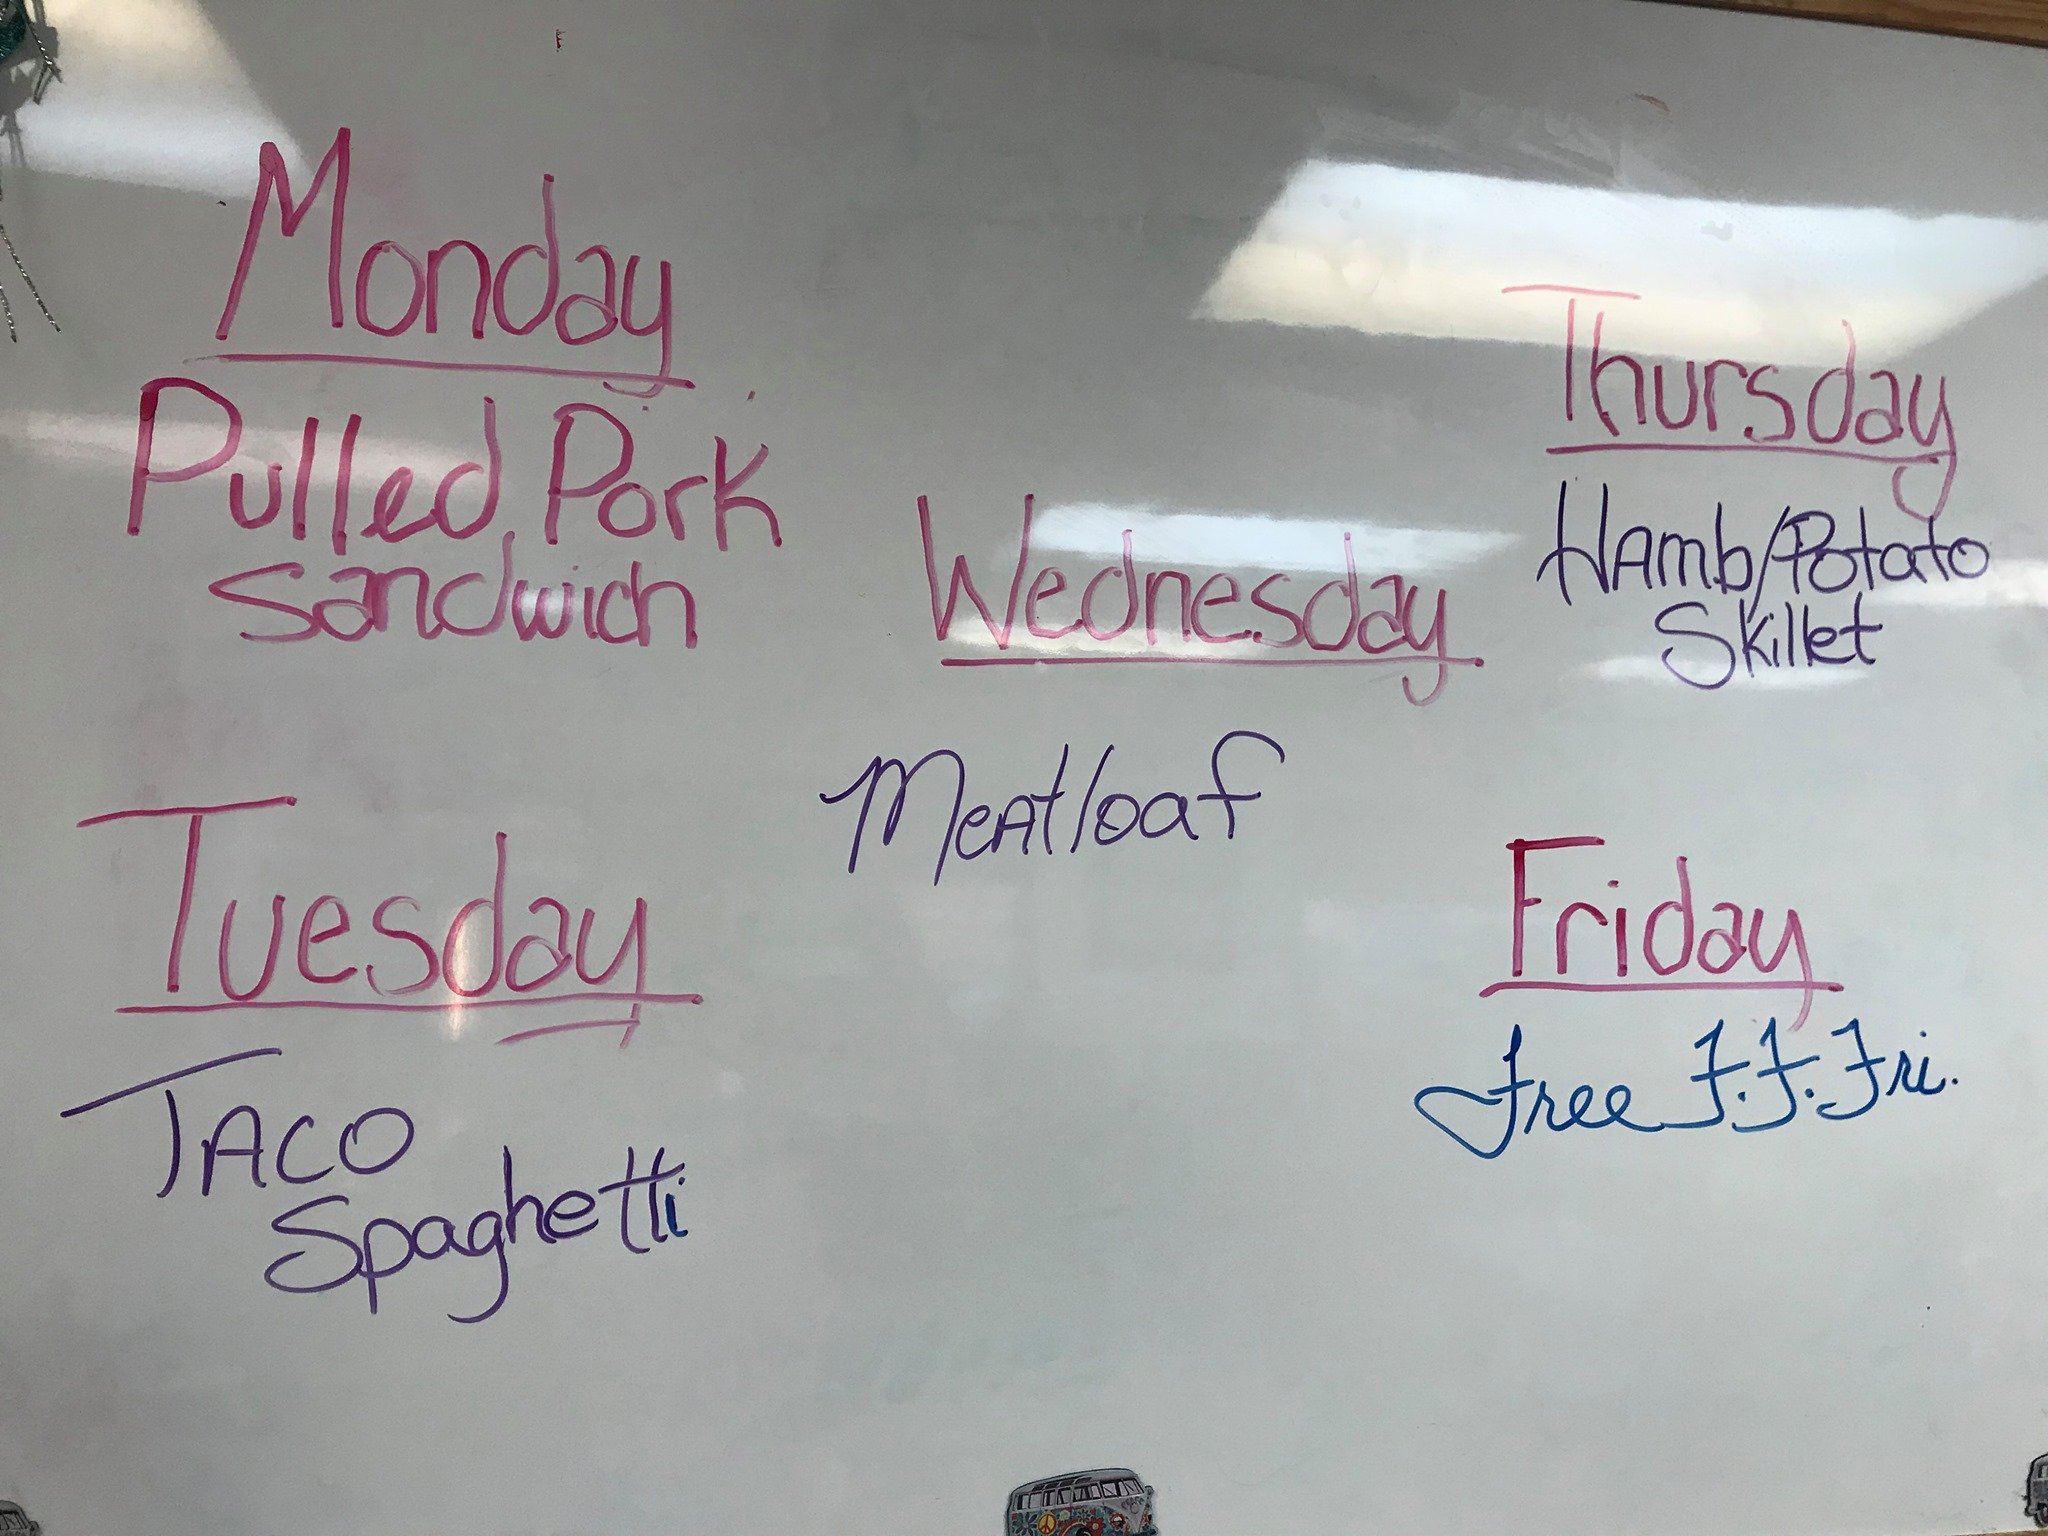 Monday
Pulled Pork
Sandwich
Tuesday
TACO
Spaghetti
Wednesday
Meatloaf
Thursday
HAmb/Potato
Skillet
Friday
Free F.F. Fri.